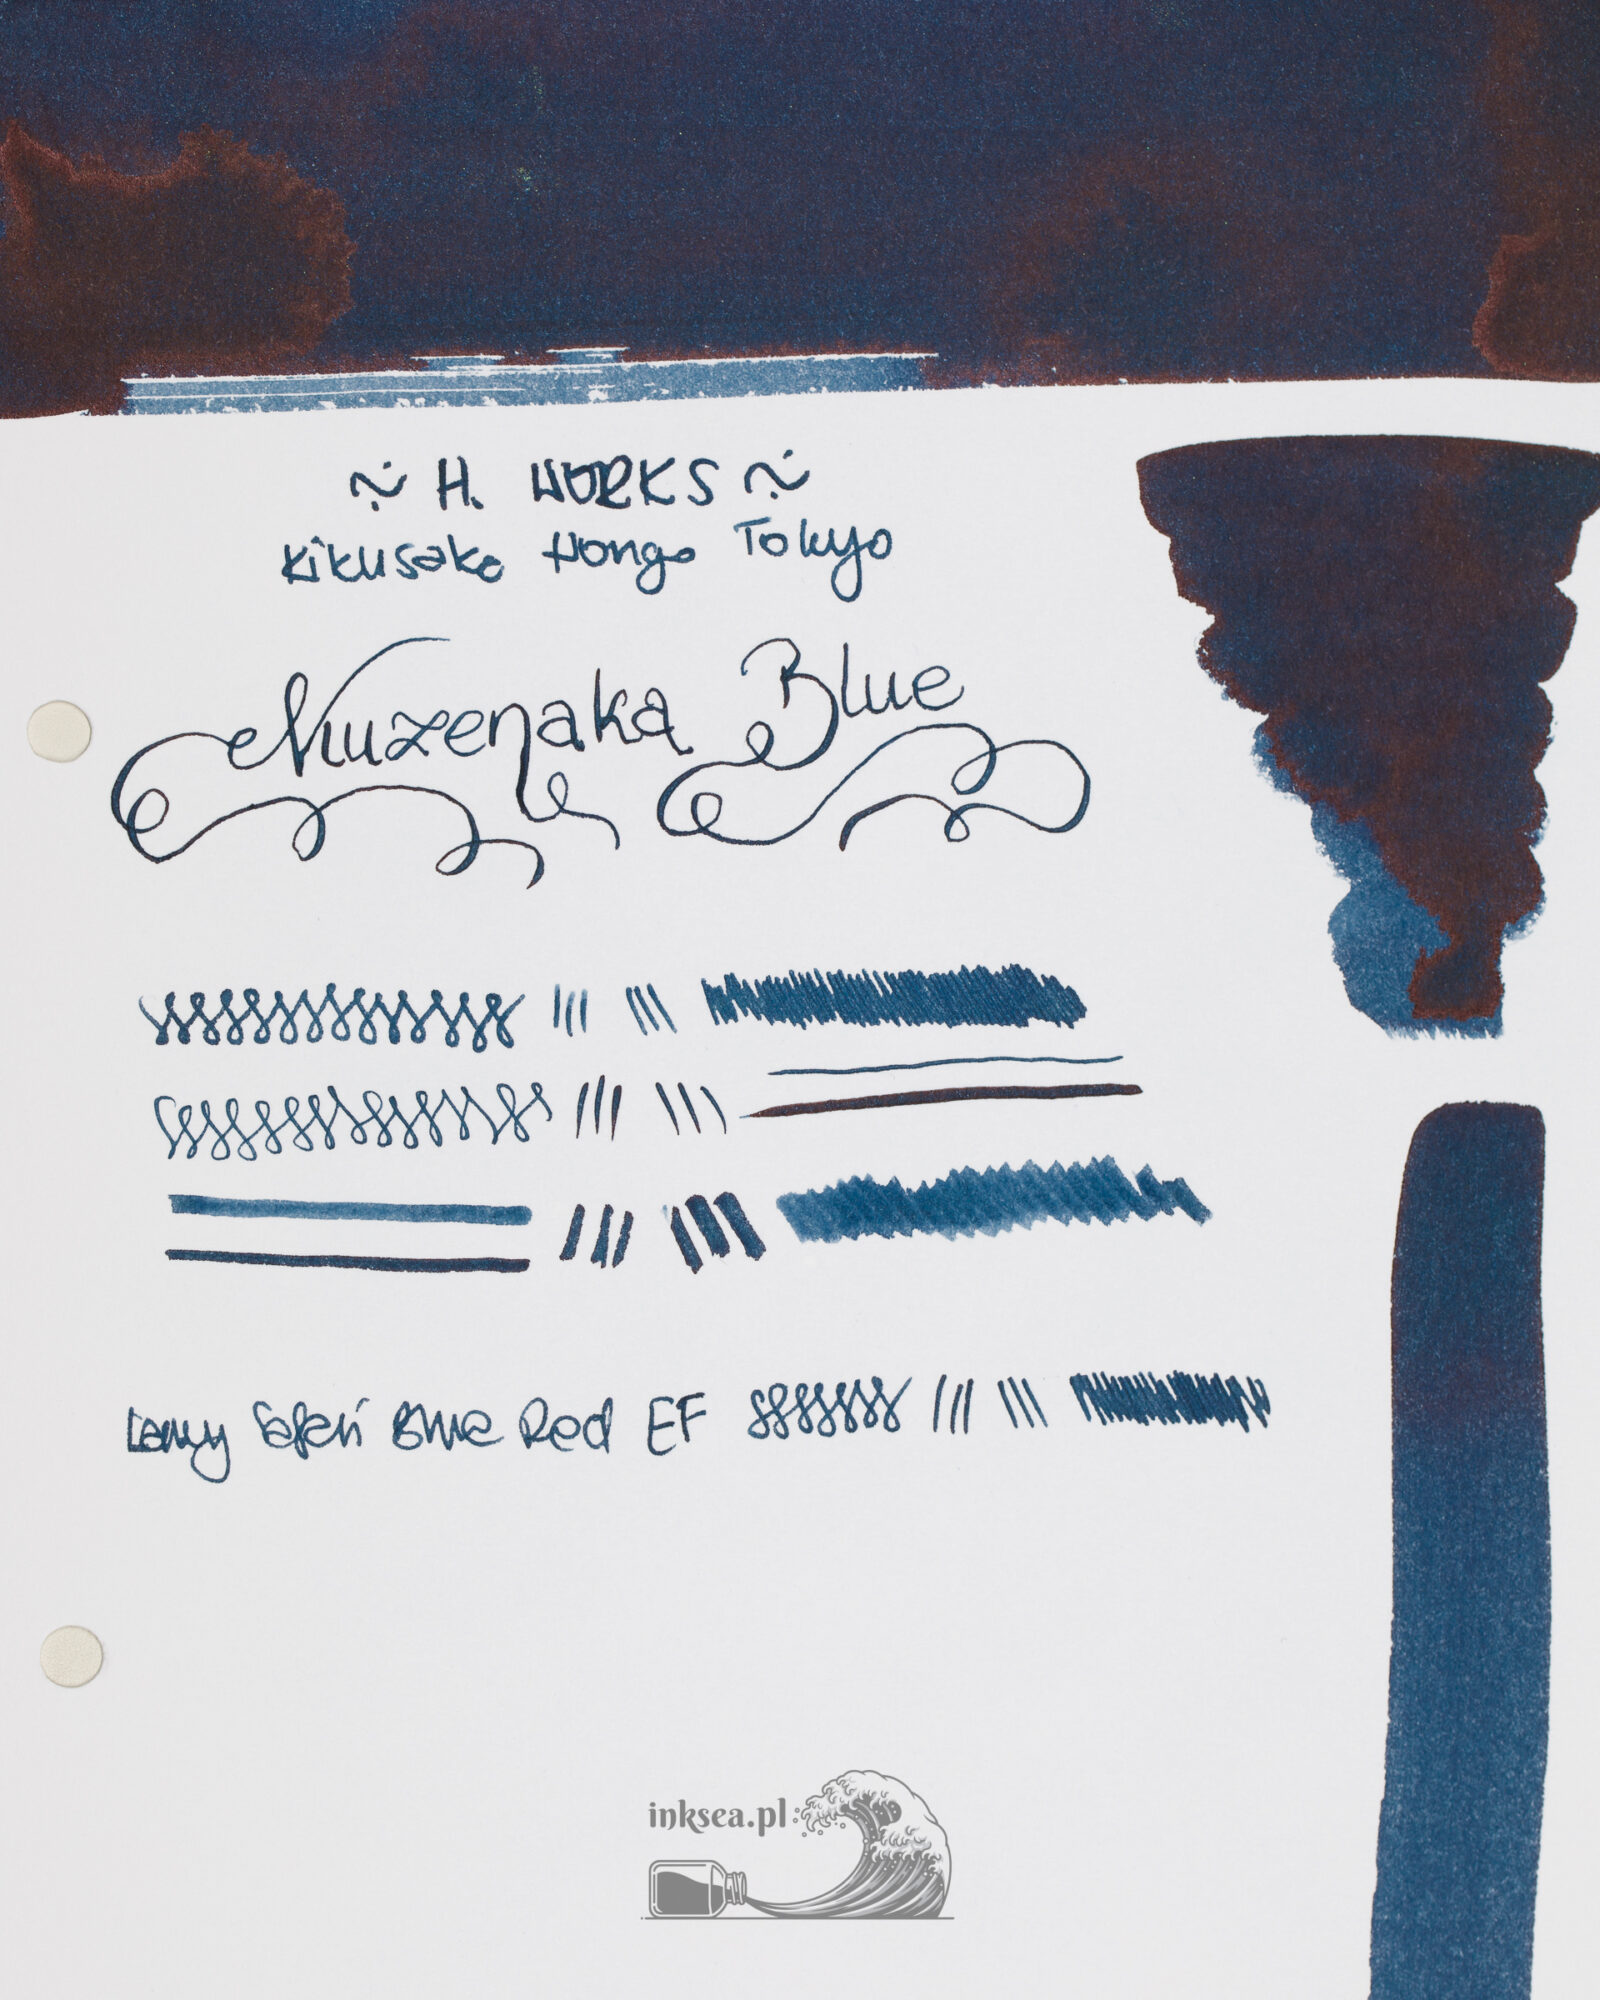 ~ H. WORKS ~
Kikusaka Hongo Tokyo
Nuxenaka Blue
Lamy Safari Blue Red EF
inksea.pl